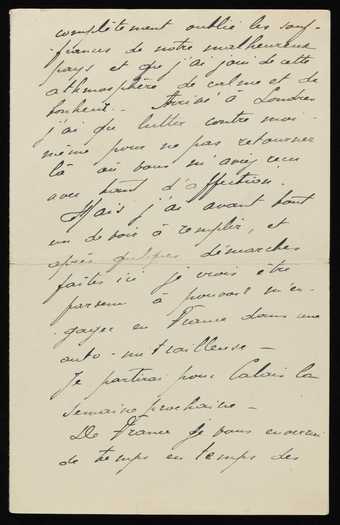 complètement oublié les souf-
frances de notre malheureux
pays et que j'ai joui de cette
athmosphère de calme et de
bonheur. Arrivé à Londres
j'ai du lutter contre moi-
même pour ne pas retourner
là où vous m'aviez reçu
avec tant d'affection.
Mais j'ai avant tout
un devoir à remplir, et
après quelques démarches
faites ici je crois être
parvenu à pouvoir m'en-
gager en France dans une
auto-mitrailleuse —
Je partirai pour Calais la
semaine prochaine —
De France je vous enverrai
de temps en temps des